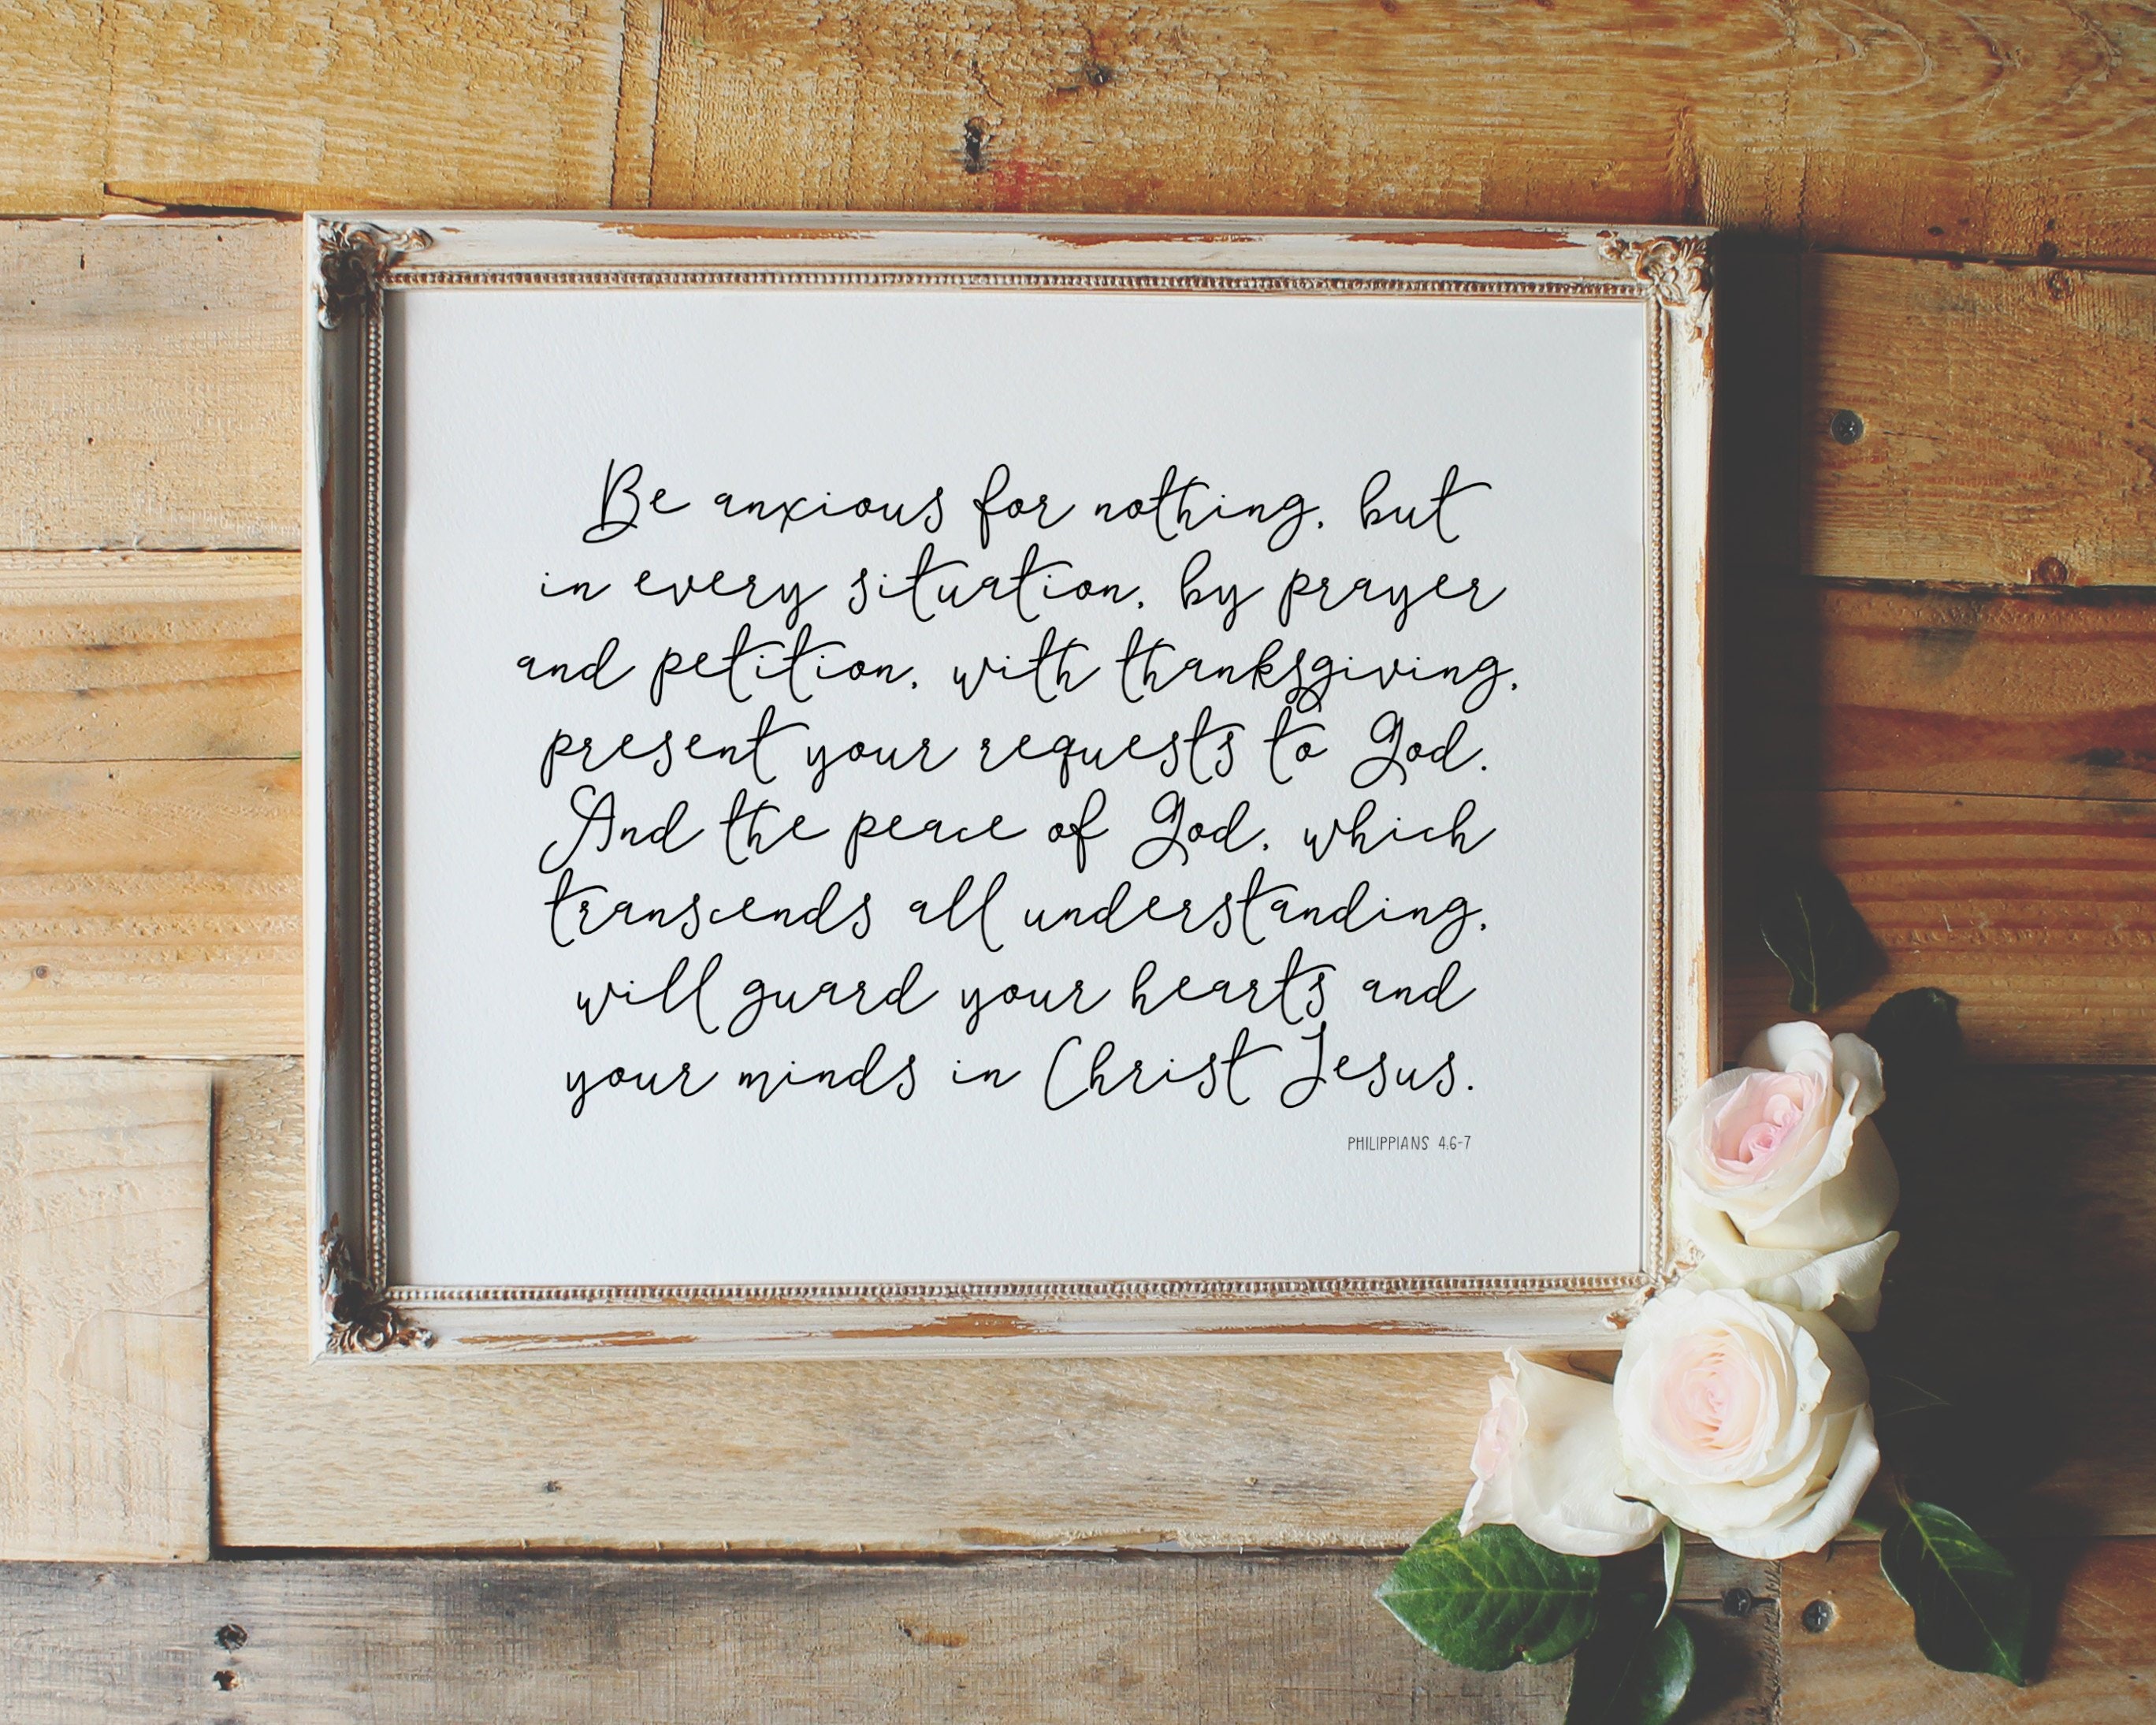 Be anxious for nothing, but
in every situation, by prayer
and petition, with thanksgiving,
present your requests to God.
And the peace of God, which
transcends all understanding,
will guard your hearts and
your minds in Christ Jesus.
PHILIPPIANS 4:6-7